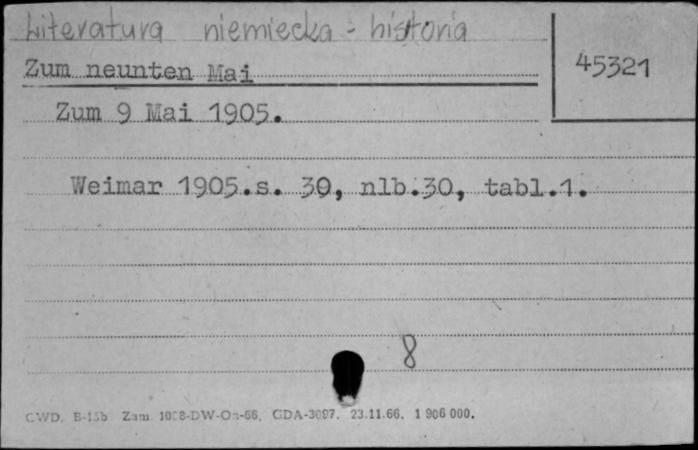 Literatura niemiecka - historia
Zum neunten Mai
45321
Zum 9 Mai 1905.
Weimar 1905.s. 30, nlb.30, tabl.1.
8
CWD. B-15b Zam. 1008-DW-On-66. GDA-3097. 23.11.66. 1 906 000.